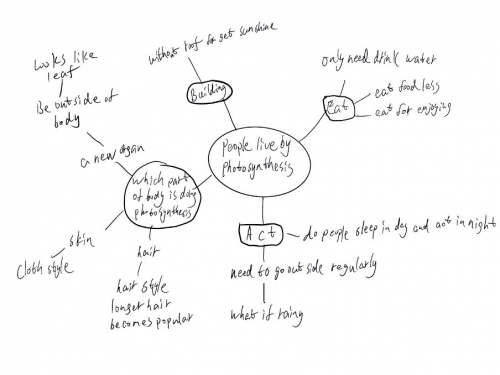 Looks like
leaf
Be outside of
body
a new organ
without roof for get sunshine
Building
only need drink water
Eat
eat food less
eat for enjoying
People live by
photosynthesis
which part
of body is doing
photosynthesis
skin
Cloth style
hair
hair style
longer hair
becomes popular
Act
do people sleep in day and act in night
need to go outside regularly
what if rainy